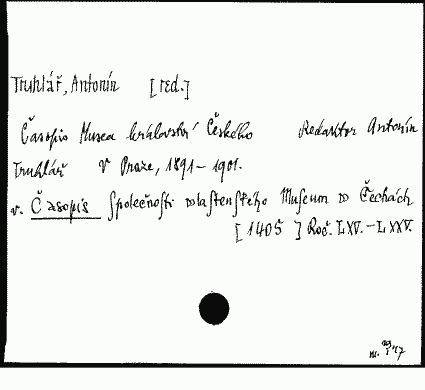 Truhlář, Antonín [red.]
Časopis Musea království Českého Redaktor Antonín
Truhlář V Praze, 1891–1901.
v. Časopis Společnosti wlastenského Museum w Čechách
[1405] Roč. LXV.–LXXV.